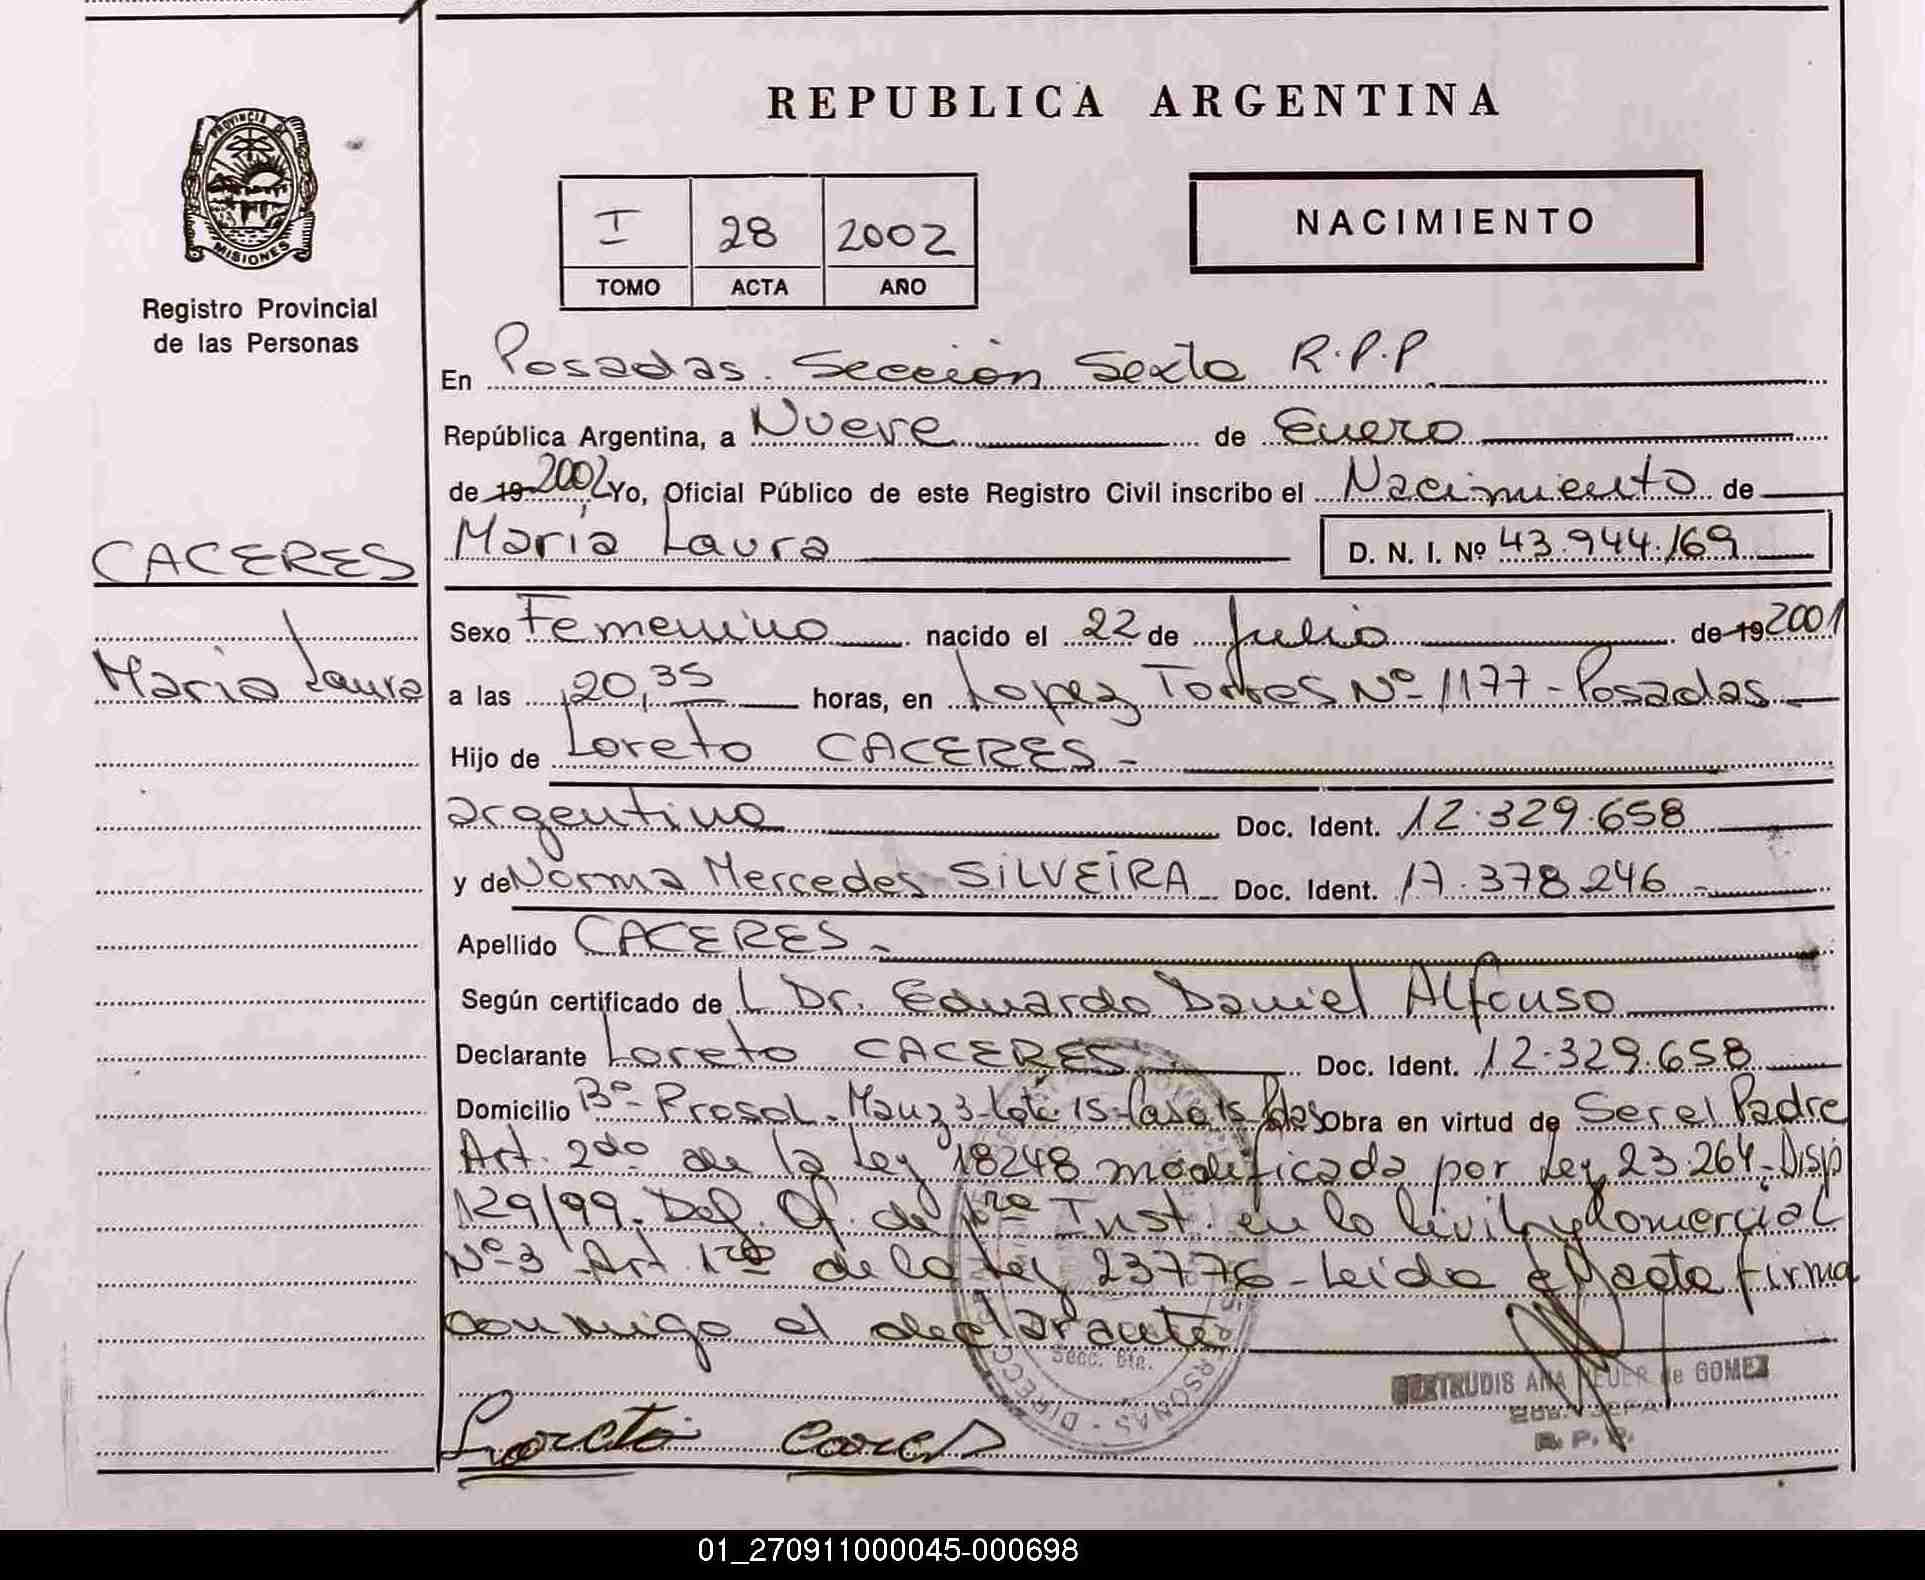 REPUBLICA ARGENTINA
PROVINCIA DE
MISIONES
Registro Provincial
de las Personas
I 28 2002
TOMO ACTA AÑO
NACIMIENTO
En Posadas. Sección Sexta R.P.P.
República Argentina, a Nueve de Enero
de 19 2002 Yo, Oficial Público de este Registro Civil inscribo el Nacimiento de
María Laura D. N. I. Nº 43.944.169
CACERES
María Laura
Sexo Femenino nacido el 22 de Julio de 19 2001
a las 20,35 horas, en Lopez Torres Nº 1177 - Posadas
Hijo de Loreto CACERES -
argentino Doc. Ident. 12.329.658
y de Norma Mercedes SILVEIRA Doc. Ident. 17.378.246 -
Apellido CACERES -
Según certificado de Dr. Eduardo Daniel Alfonso
Declarante Loreto CACERES Doc. Ident. 12.329.658
Domicilio Bº Prosol - Manz 3 - Lote 15 - Casa 15 - Pdas Obra en virtud de Ser el Padre
Art. 2do de la Ley 18248 modificada por Ley 23.264 - Disp
129/99. Def. Of. de 1ra Inst. en lo Civil y Comercial
Nº 3 Art 1ro de la Ley 23776 - Leida el Acta firma
conmigo el declarante
Secc. 6ta.
GERTRUDIS ANA de GOMEZ
R. P. P.
Loreto
01_270911000045-000698